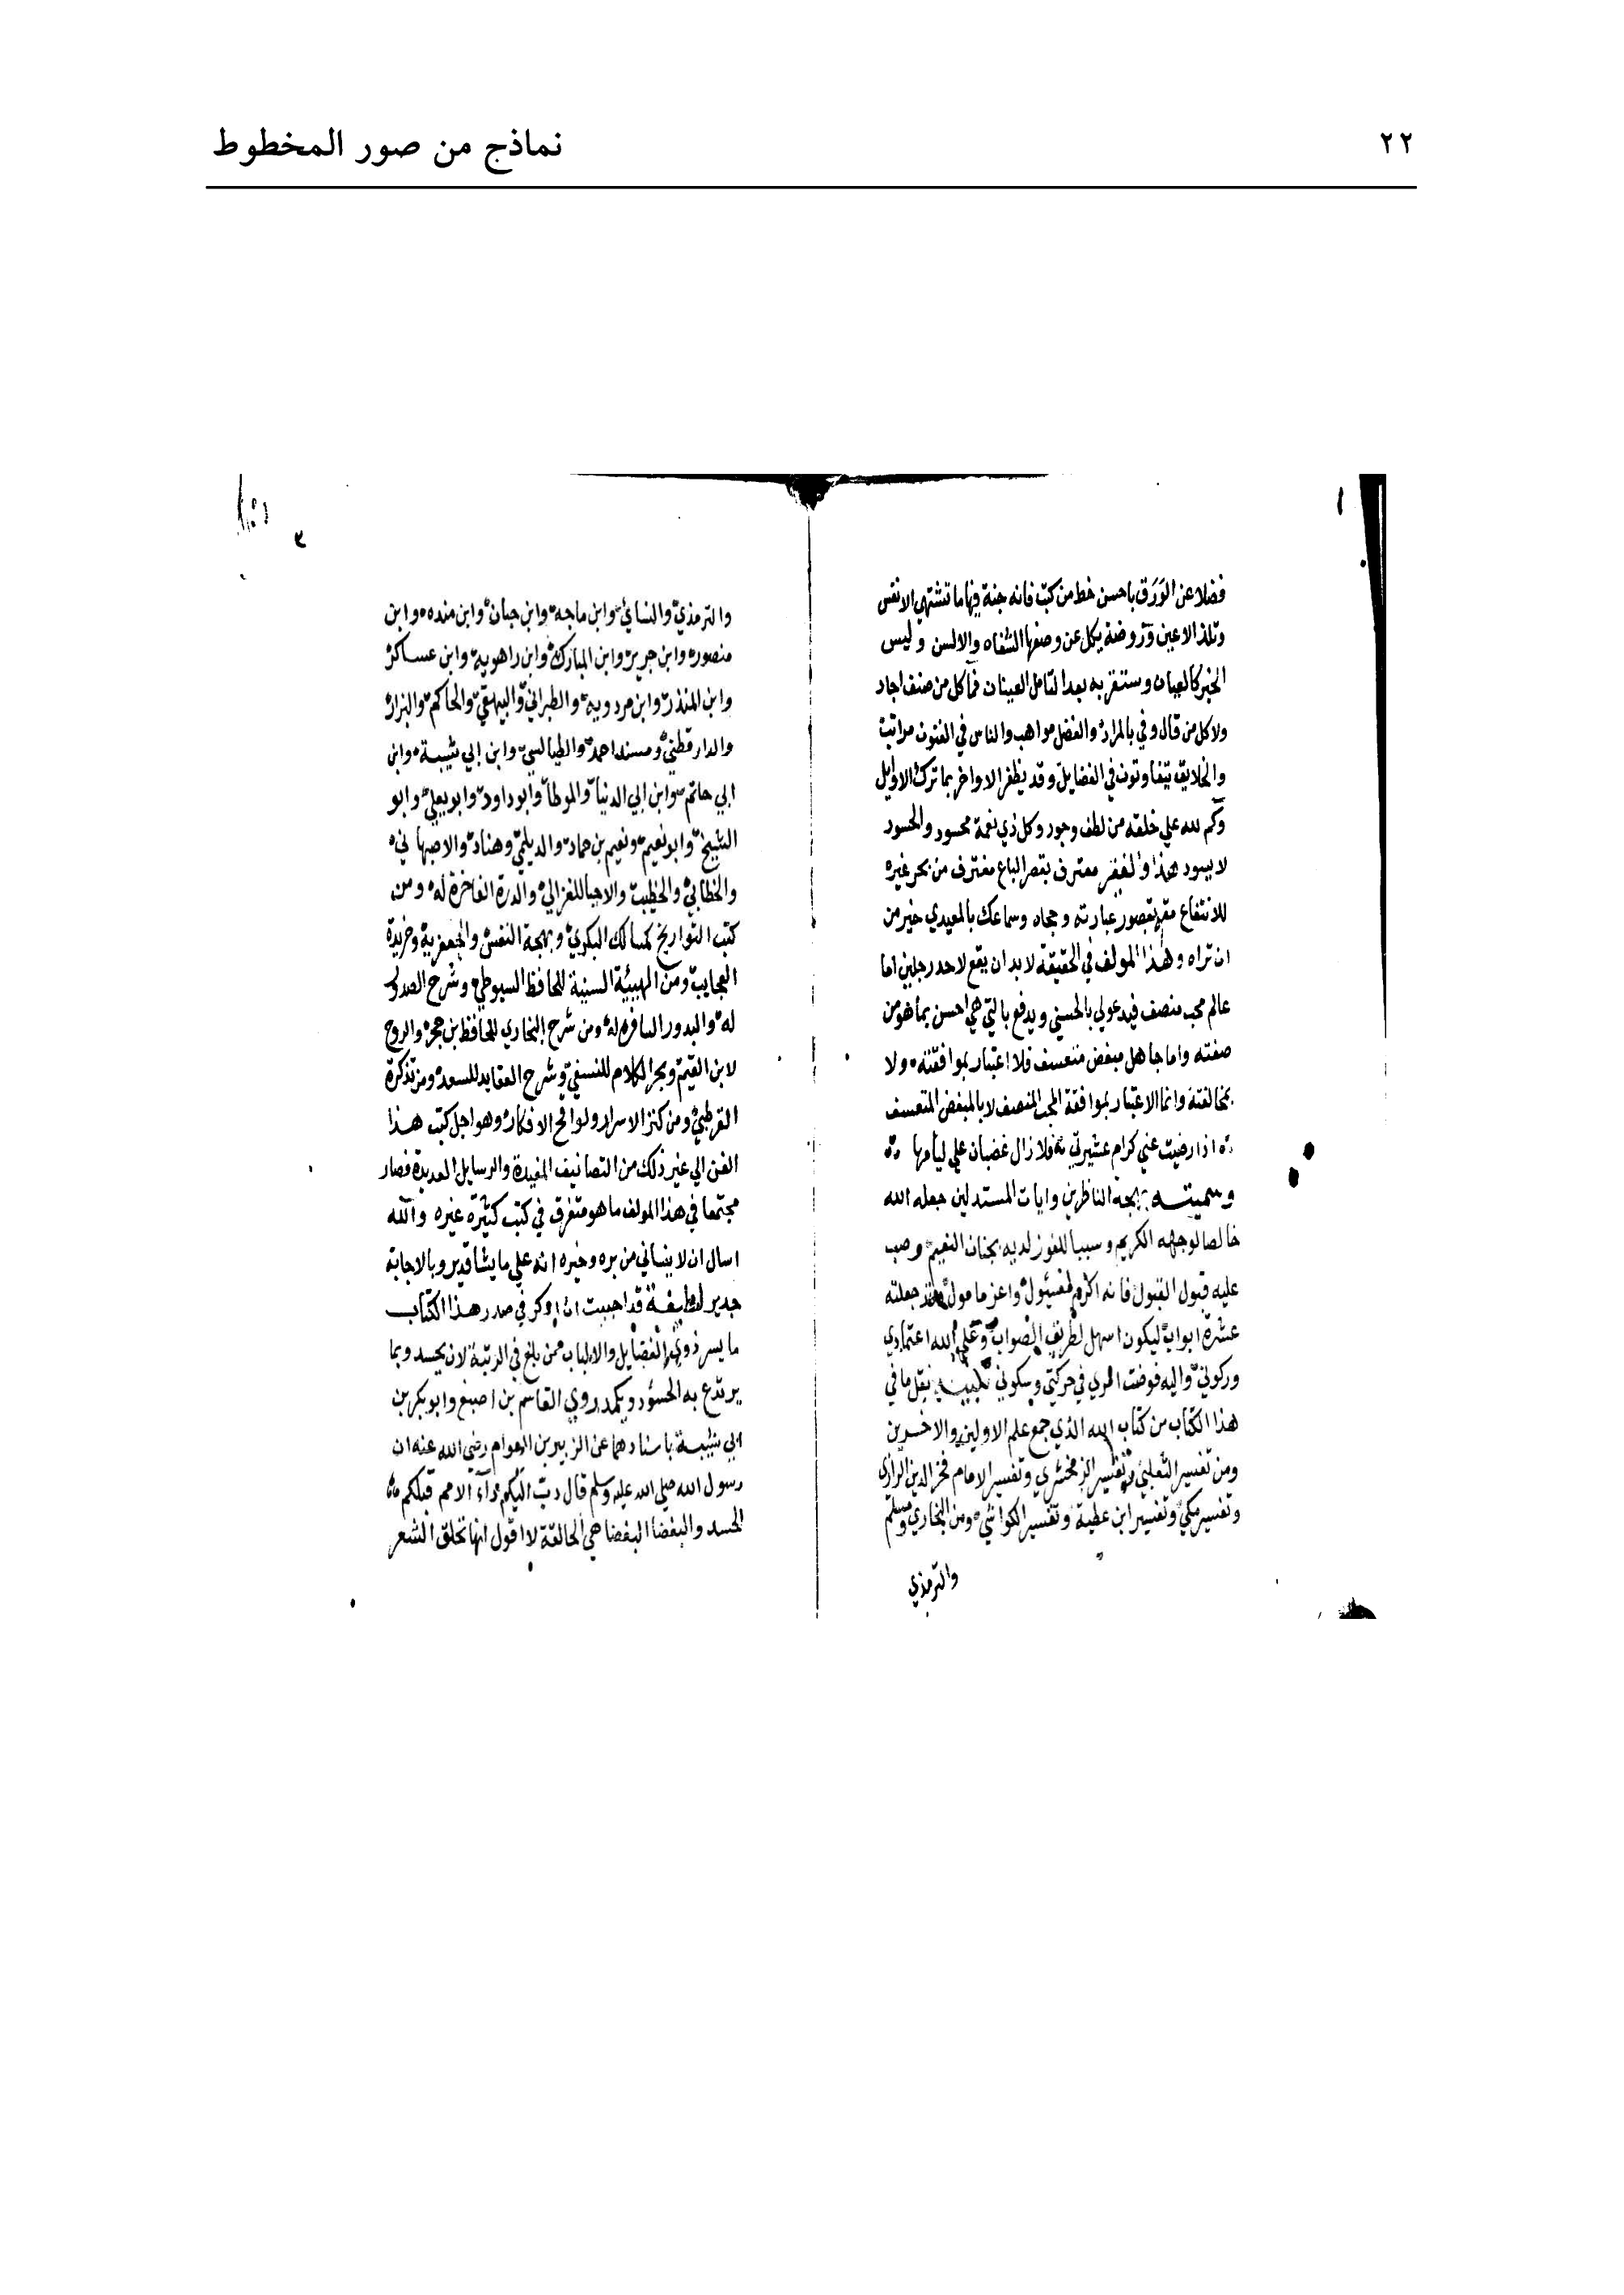 ٢٢
نماذج من صور المخطوط
فضلا عن الوَرَق باحسن خط من كتب فانه جنة فيها ما تشتهي الانفس
وتلذ الاعين وروضة يكل عن وصفها الشفاه والالسن وليس
الخبر كالعيان وستنقر به بعد التامل العينان فما كل من صنف اجاد
ولا كل من قال وفي بالمراد والفضل مواهب والناس في الفنون مراتب
والخلايق يتفاوتون في الفضايل وقد يظفر الاواخر بما ترك الاوايل
وكم لله علي خلقه من لطف وجود وكل ذي نعمة محسود والحسود
لا يسود هذا والفقير معترف بقصر الباع مغترف من بحر غيره
للانتفاع مقر بقصور عبارته وسماعك بالمعيدي خير من
ان تراه وهذا المولف في الحقيقة لا بد ان يقع لاحد رجلين اما
عالم محب منصف فيدعولي بالحسني ويدفع بالتي هي احسن بما هو من
صفته واما جاهل مبغض متعسف فلا اعتبار بموافقته ولا
بمخالفته وانما الاعتبار بموافقة المحب المنصف لا بالمبغض المتعسف
اذا رضيت عني كرام عشيرتي فلا زال غضبان علي ليامها
وسميته بهجة الناظرين وايات المستدلين جعله الله
خالصا لوجهه الكريم وسببا للفوز لديه بجنات النعيم وصب
عليه قبول القبول فانه اكرم مسئول واعز مامول وقد جعلته
عشرة ابواب ليكون اسهل لطريق الصواب وعلي الله اعتمادي
وركوني واليه فوضت امري في حركتي وسكوني نقل ما في
هذا الكتاب من كتاب الله الذي جمع علم الاولين والاخرين
ومن تفسير الثعلبي وتفسير الزمخشري وتفسير الامام فخر الدين الرازي
وتفسير مكي وتفسير ابن عطية وتفسير الكواشي ومن البخاري ومسلم
والترمذي
والترمذي والنسائي وابن ماجه وابن حبان وابن منده وابن
منصور وابن جرير وابن المبارك وابن راهويه وابن عساكر
وابن المنذر وابن مردويه والطبراني والبيهقي والحاكم والبزار
والدارقطني ومسند احمد والطيالسي وابن ابي شيبة وابن
ابي حاتم وابن ابي الدنيا والموطا وابو داود وابو يعلي وابو
الشيخ وابو نعيم ونعيم بن حماد والديلمي وهناد والاصبهاني
والخطابي والخطيب والاحيا للغزالي والدرة الفاخرة له ومن
كتب التواريخ كمسالك البكري وبهجة النفس والجعفرية وخريدة
العجايب ومن الهيئية السنية للحافظ السيوطي وشرح الصدور
له والبدور السافره له ومن شرح البخاري للحافظ بن حجر والروح
لابن القيم وبحر الكلام للنسفي وشرح العقايد للسعد ومن تذكرة
القرطبي ومن كنز الاسرار ولواقح الافكار وهو اجل كتب هذا
الفن الي غير ذلك من التصانيف المفيدة والرسايل العديدة فصار
مجتمعا في هذا المولف ما هو متفرق في كتب كثيرة غيره والله
اسال ان لا ينساني من بره وخيره انه علي ما يشا قدير وبالاجابة
جدير لطيفة قد احببت ان اذكر في صدر هذا الكتاب
ما يسر ذوي الفضايل والالباب ممن بلغ في الرتبة لان يحسد وبما
يرتدع به الحسود ويكمد روي القاسم بن اصبغ وابو بكر بن
ابي شيبة باسنادهما عن الزبير بن العوام رضي الله عنه ان
رسول الله صلي الله عليه وسلم قال دبّ اليكم داء الامم قبلكم
الحسد والبغضا البغضا هي الحالقة لا اقول انها تحلق الشعر